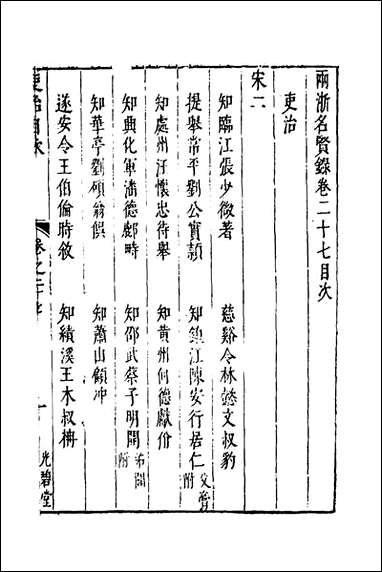 兩浙名賢錄卷二十七目次
吏治
宋二
知臨江張少微著 慈谿令林懿文叔豹
提舉常平劉公實穎 知鎮江陳安行居仁 父膏附
知處州汙懷忠待舉 知黃州何德獻价
知興化軍潘德鄜時 知邵武蔡子明開 弟閌附
知華亭劉碩翁俁 知蕭山顧冲
遂安令王伯倫時敘 知績溪王木叔柟
卷之二十七
一
光碧堂